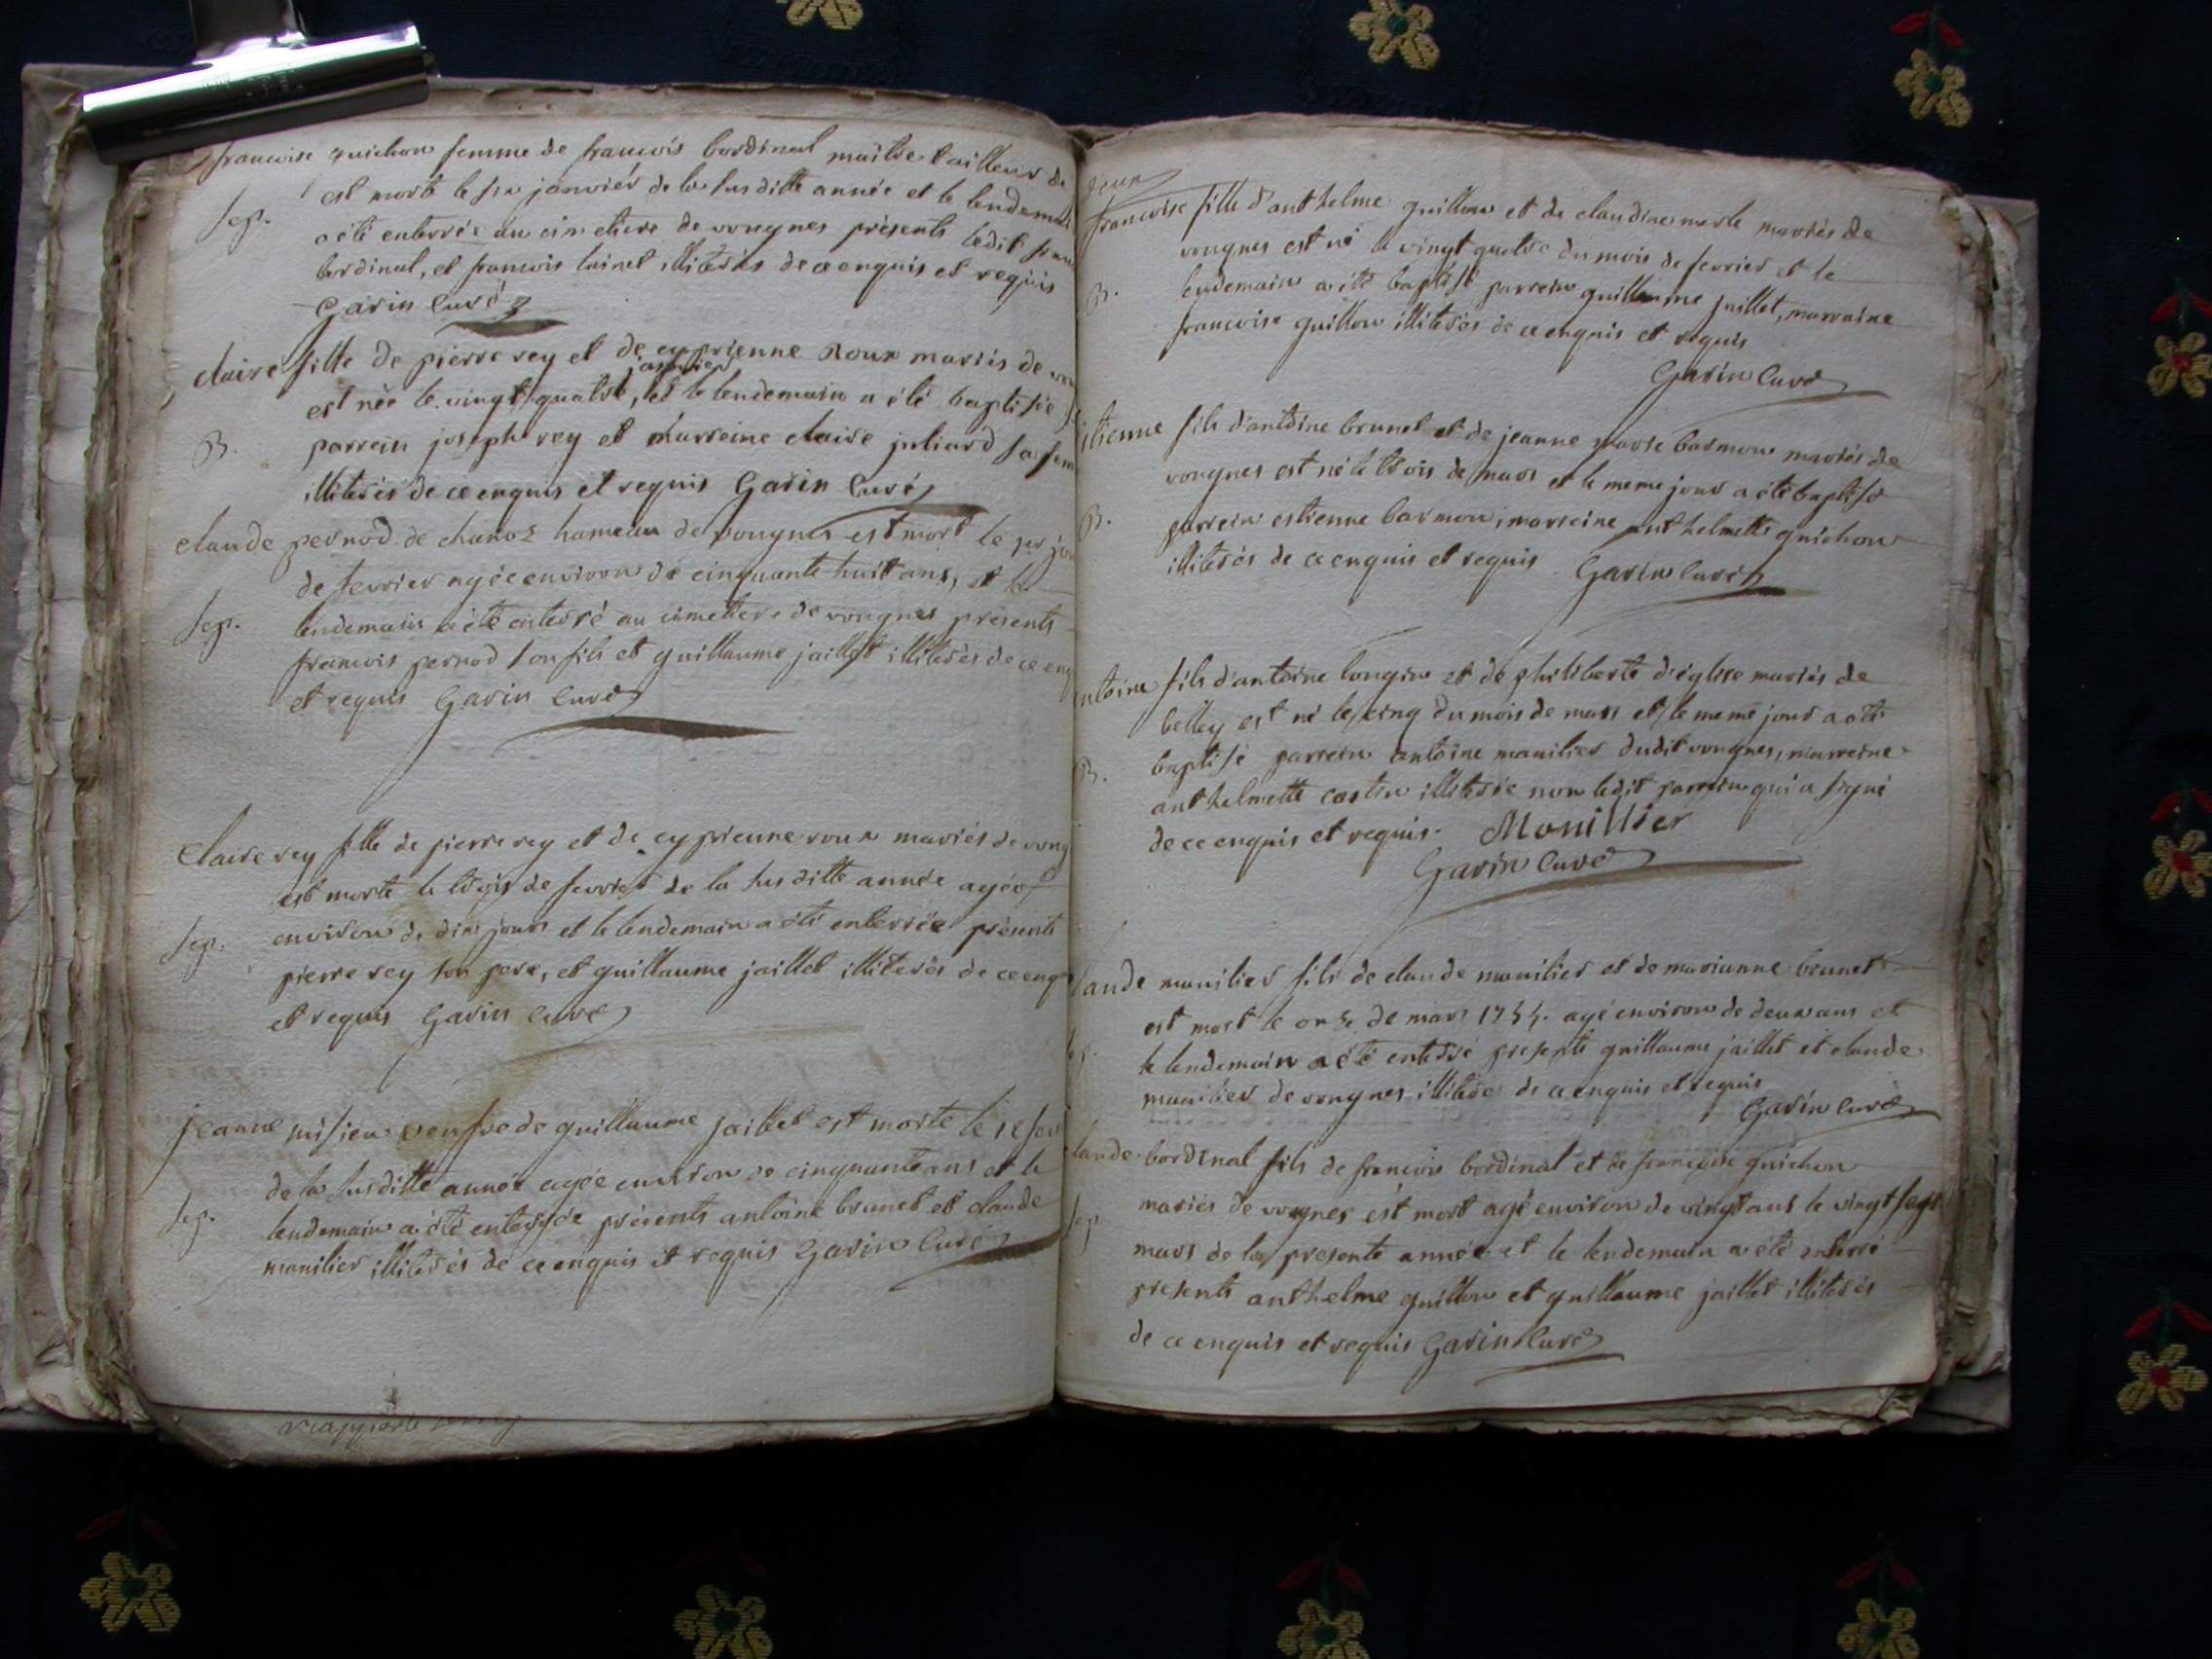 francoise guichon femme de francois bordinal maitre tailleur de
est morte le six janvier de la susditte année et le lendemain
Sep.
a été enterrée au cimetiere de vongnes présents ledit fran
bordinal, et francois luinet illiterés de ce enquis et requis
Garin curé
claire fille de pierre rey et de cyprienne Roux mariés de von
janvier
est née le vingt quatre, et le lendemain a été baptisée
B.
parrein joseph rey et marreine claire juliard sa fem
illiterés de ce enquis et requis Garin curé
claude pernod de chanoz hameau de vongnes est mort le jour
de fevrier agée environ de cinquante huit ans, et le
Sep.
lendemain a été enterré au cimettere de vongnes présents
francois pernod son fils et guillaume jaillet illiterés de ce enq
et requis Garin curé
Claire rey fille de pierre rey et de cyprienne roux mariés de vong
est morte le trois de fevrier de la susditte année agée
Sep.
environ de dix jours et le lendemain a été enterrée présents
pierre rey son pere, et guillaume jaillet illiterés de ce enq
et requis Garin curé
jeanne veufve de guillaume jaillet est morte le 12 fev
de la susditte année agée environ de cinquante ans et le
Sep.
lendemain a été enterrée présents antoine brunet et claude
manilier illiterés de ce enquis et requis Garin curé
francoise fille d'anthelme guillon et de claudine merle mariés de
vongnes est né le vingt quatre du mois de fevrier et le
B.
lendemain a été baptisé parrein guillaume jaillet, marraine
francoise guillon illiterés de ce enquis et requis
Garin curé
etienne fils d'antoine brunet et de jeanne marie barmon mariés de
vongnes est né le trois de mars et le meme jour a été baptisé
B.
parrein estienne barmon, marreine anthelmette guichon
illiterés de ce enquis et requis Garin curé
antoine fils d'antoine longin et de philiberte d'église mariés de
belley est né le cinq du mois de mars et le meme jour a été
B.
baptisé parrein antoine manilier dudit vongnes, marreine
anthelmette costin illiterée non ledit parrein qui a signé
de ce enquis et requis. Manillier
Garin curé
claude manilier fils de claude manilier et de marianne brunet
est mort le onze de mars 1754. agé environ de deux ans et
Sep.
le lendemain a été enterré presents guillaume jaillet et claude
manilier de vongnes illiterés de ce enquis et requis
Garin curé
claude bordinal fils de françois bordinal et de françoise guichon
mariés de vongnes est mort agé environ de vingt ans le vingt sept
Sep
mars de la presente année et le lendemain a été enterré
presents anthelme guillon et guillaume jaillet illiterés
de ce enquis et requis Garin curé